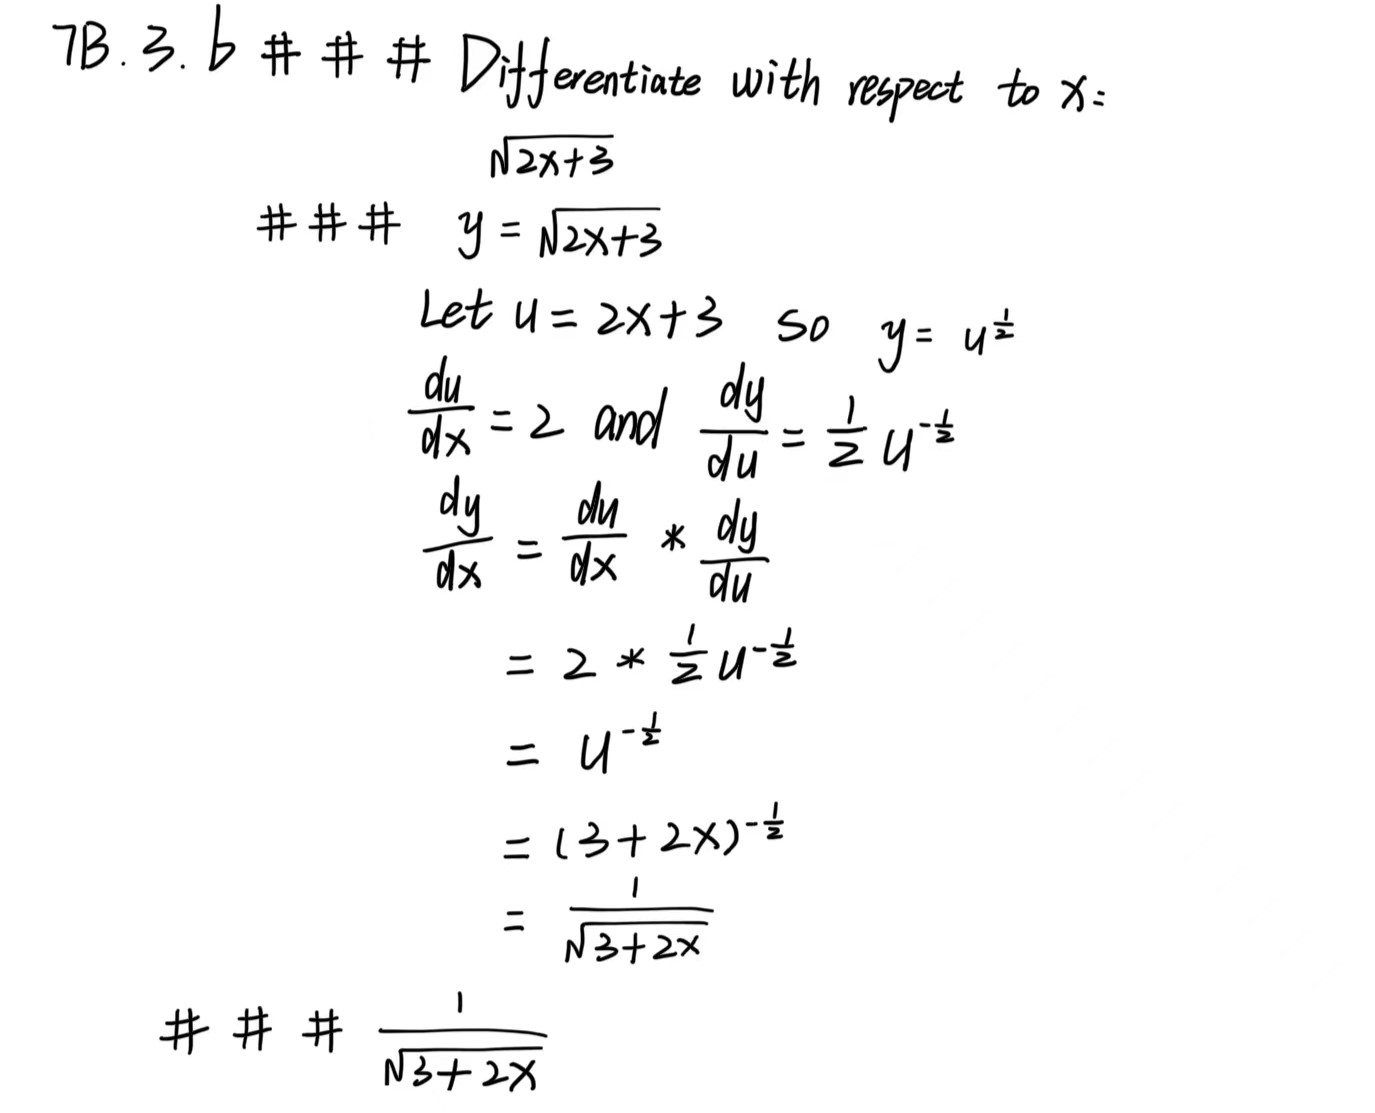 7B.3.b # # # Differentiate with respect to x:
√(2x+3)
### y = √(2x+3)
Let u = 2x+3 so y = u^(1/2)
du/dx = 2 and dy/du = 1/2 u^(-1/2)
dy/dx = du/dx * dy/du
= 2 * 1/2 u^(-1/2)
= u^(-1/2)
= (3+2x)^(-1/2)
= 1/√(3+2x)
# # # 1/√(3+2x)